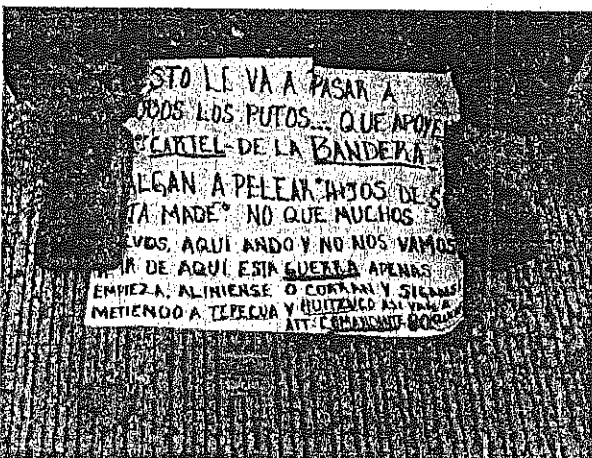 STO LE VA A PASAR A
ODOS LOS PUTOS... QUE APOYE
CARTEL DE LA BANDERA"
ALGAN A PELEAR "HIJOS DE S
TA MADE" NO QUE MUCHOS
EVOS, AQUI ANDO Y NO NOS VAMOS
IR DE AQUI ESTA GUERRA APENAS
EMPIEZA, ALINIENSE O CORRAN Y SIGAN
METIENDO A TEPECUA Y HUITZUCO ASI VAN A
ATT: COMANDANTE